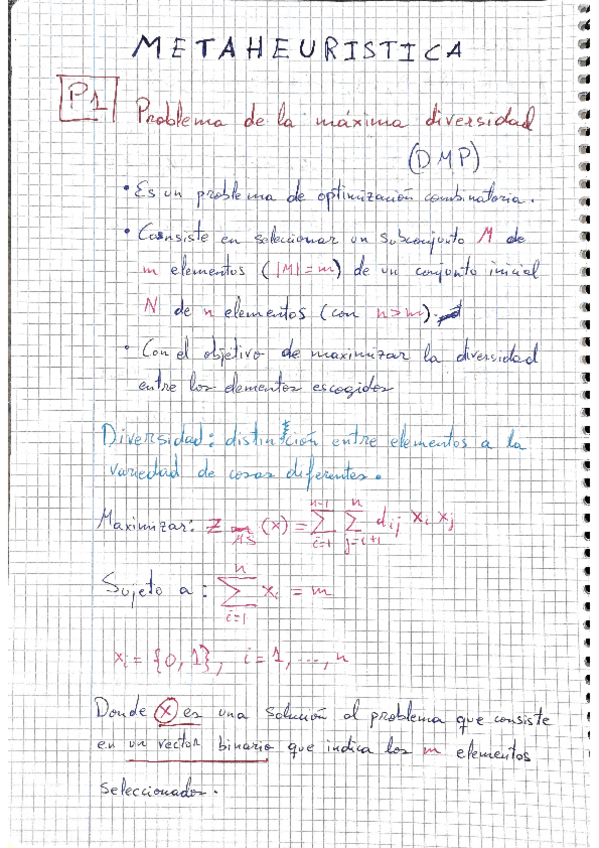 METAHEURISTICA
P1 Problema de la máxima diversidad
(DMP)
• Es un problema de optimización combinatoria.
• Consiste en seleccionar un subconjunto M de
m elementos (|M|=m) de un conjunto inicial
N de n elementos (con n>m).
• Con el objetivo de maximizar la diversidad
entre los elementos escogidos
Diversidad: distinción entre elementos a la
variedad de cosas diferentes.
Maximizar: Z_MS (x) = \sum_{i=1}^{n-1} \sum_{j=i+1}^{n} d_{ij} x_i x_j
Sujeto a: \sum_{i=1}^{n} x_i = m
x_i = {0, 1}, i = 1, ..., n
Donde x es una solución al problema que consiste
en un vector binario que indica los m elementos
seleccionados.